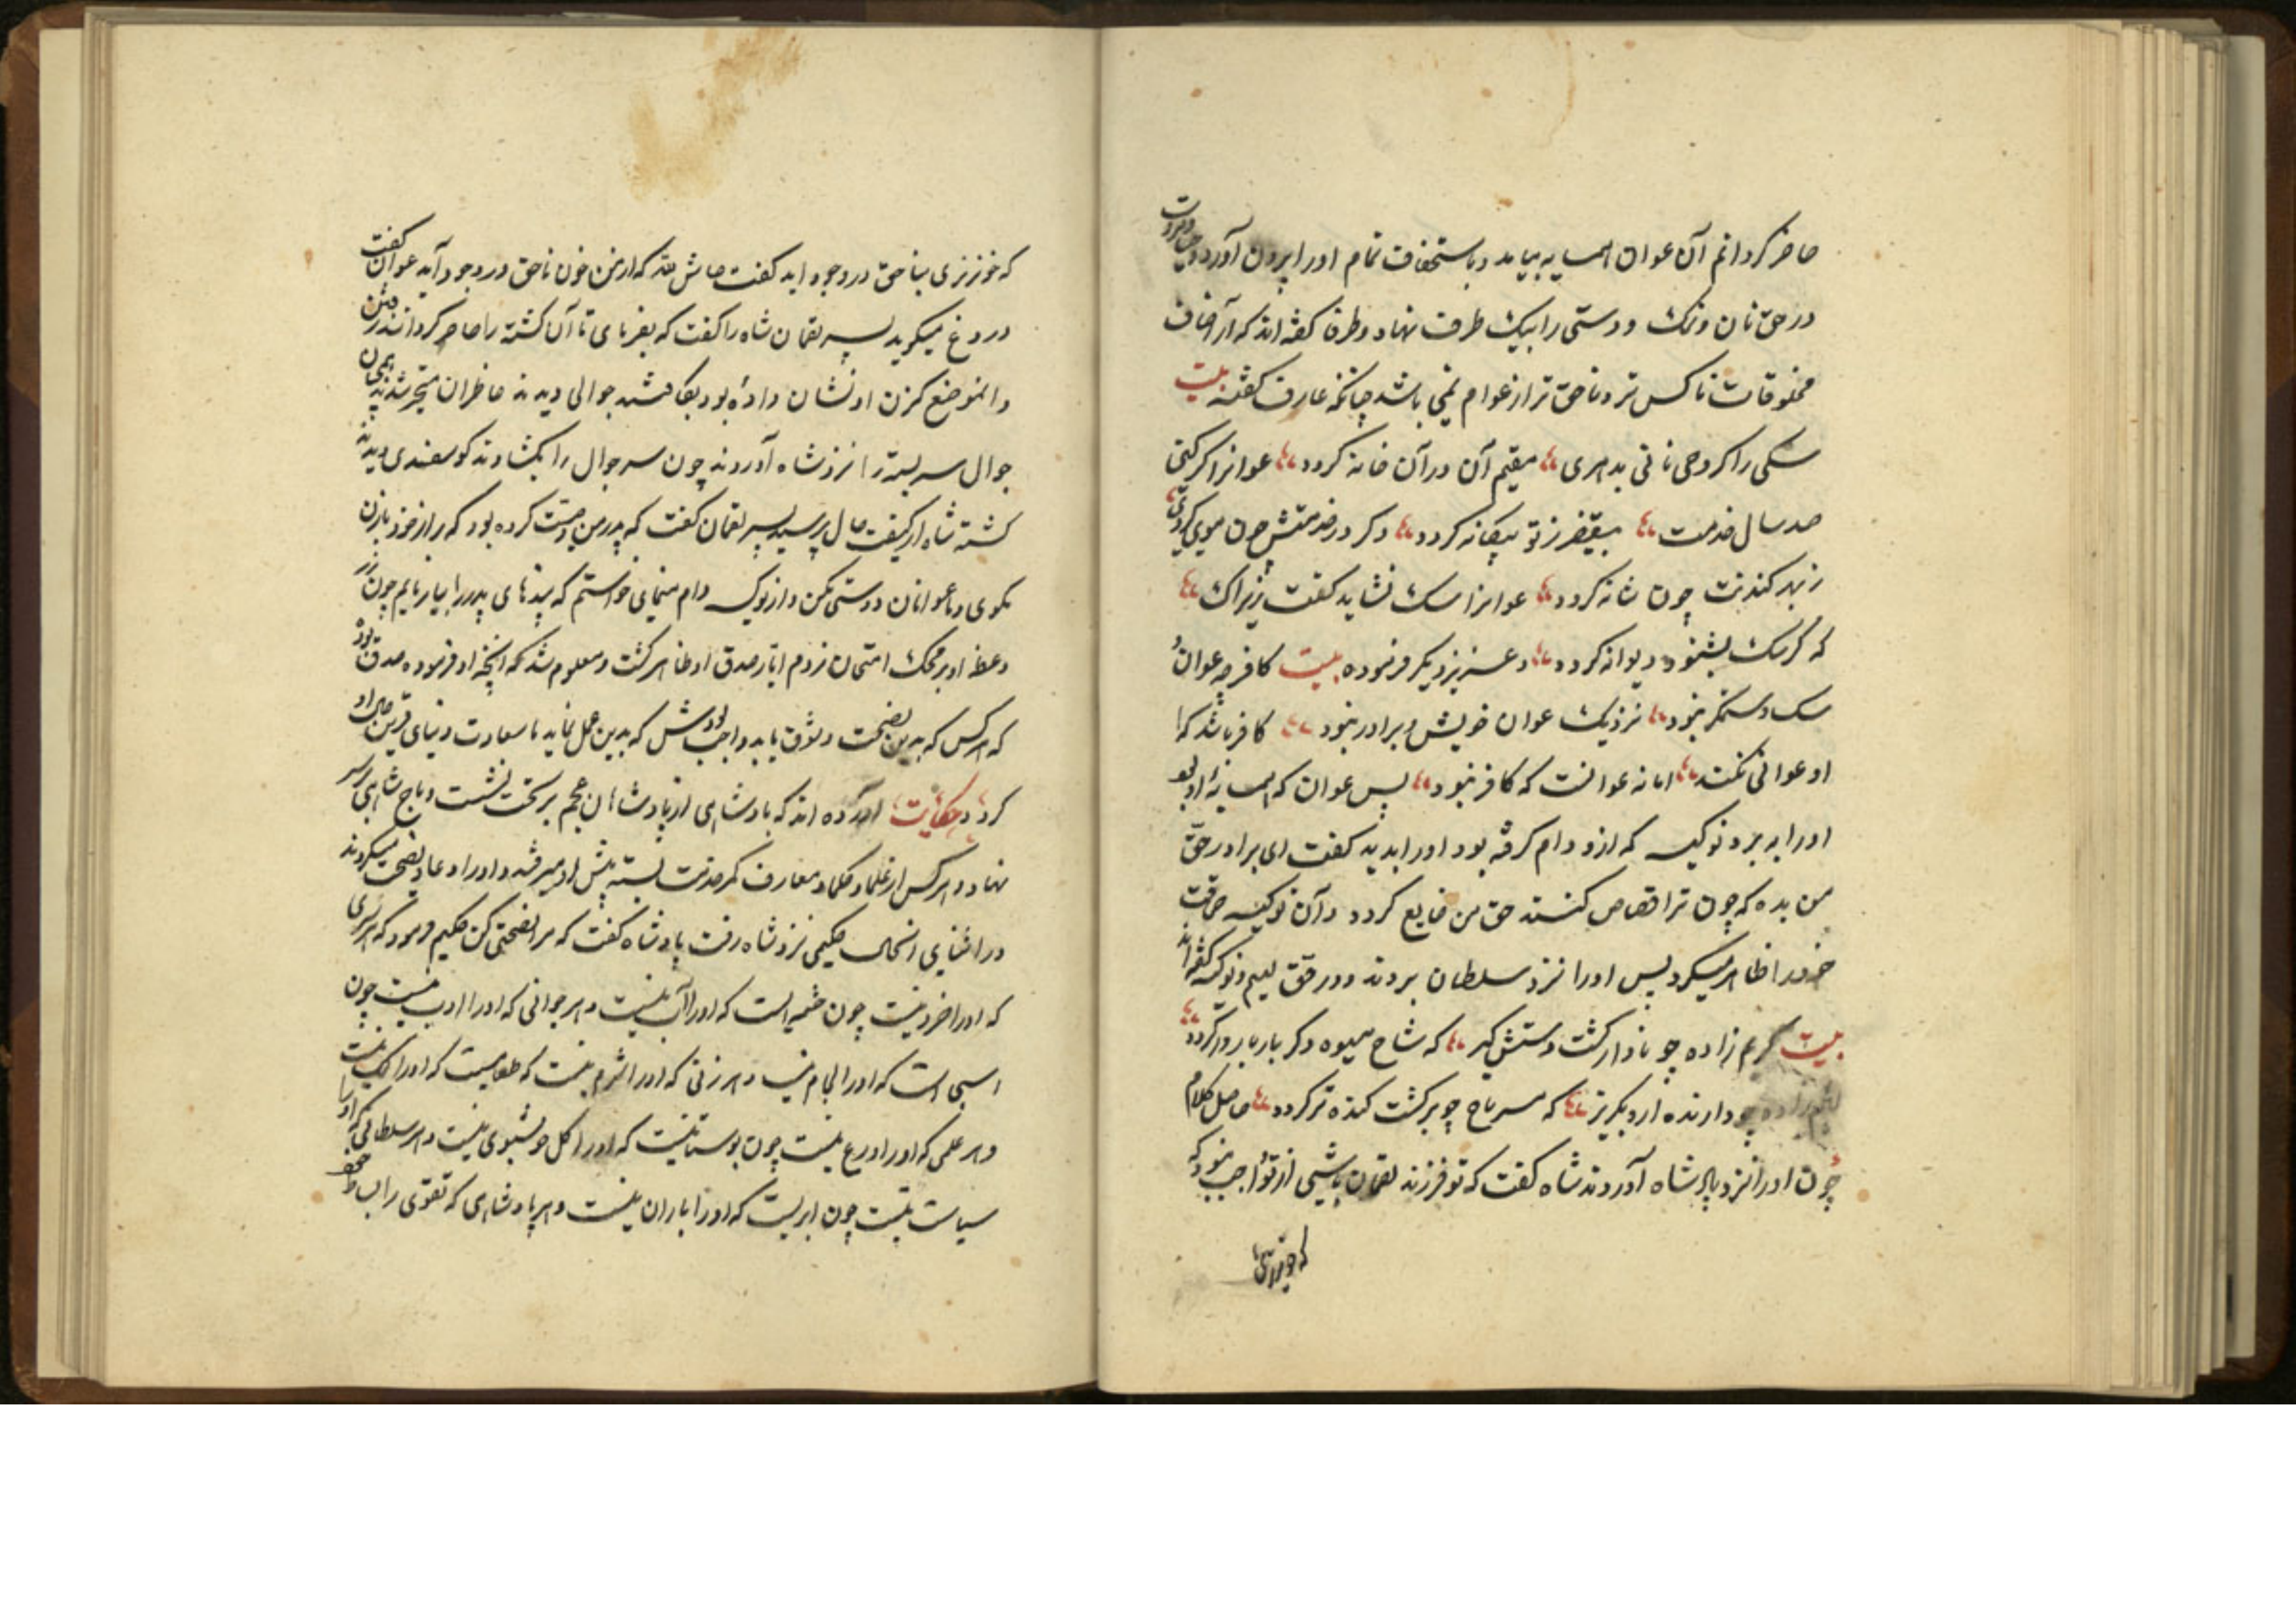 حاضر کردانم آن عوان همسایه بیامد و باستخفاف تمام اورا بیرون آورد و
در حق نان و نمک و دوستی را بیک طرف نهاد و ظرفا کفته اند که از اصناف
مخلوقات ناکس تر و ناحق تر از عوام نمی باشد چنانکه عارف کفته بیت
سکی را کر دهی نانی بدهری مقیم آن در آن خانه کردد عوانرا کر کنی
صد سال خدمت بیک ز تو بیکانه کردد و کر در خدمتش چون موی کردی
کندنت چون شانه کردد عوانرا سک نشاید کفت زیراک
که کر سک بشنود دیوانه کردد و عزیز دیکر فرموده بیت کافر چه عوان
سک و ستمکر نبود نزدیک عوان خویش و برادر نبود کافر باشد که
او عوانی نکند اما نه عوانست که کافر نبود پس عوان که همسایهٔ او بود
اورا به برد نوکیسه که ازو وام کرفته بود اورا بدید کفت ای برادر حق
من بده که چون ترا قصاص کنند حق من ضایع کردد و آن نوکیسه
خودرا ظاهر میکرد پس اورا نزد سلطان بردند و در حق لییم و نوکیسه کفته اند
بیت کریم زاده چو نادار کشت دستش کیر که شاخ میوه دکر بار بارور کردد
لییم زاده چو دارنده از و بکریز که مستراح چو پر کشت کنده تر کردد حاصل کلام
چون اورا نزد پادشاه آوردند شاه کفت که تو فرزند لقمان باشی از تو واجب نبود که
که خونریزی
که خونریزی بناحق در وجود اید کفت حاش لله که از من خون ناحق در وجود آید عوان کفت
دروغ میکوید پسر لقمان شاه را کفت که بفرمای تا آن کشته را حاضر کردانند
و انموضع کزن او نشان داده بود بکافتند جوالی دیدند حاظران متحیر شدند
جوال سر بسته را نزد شاه آوردند چون سر جوال را بکشادند کوسفندی دیدند
کشته شاه از کیفیت حال پرسید پسر لقمان کفت که پدر من وصیت کرده بود که راز خود با زن
نکوی و با عوانان دوستی مکن و از نوکیسه وام خواستم که پندهای پدر را بیازمایم چون
وعظ او بر محک امتحان زدم اثار صدق او ظاهر کشت و معلوم شد که انچه او فرموده صدق بوده
که هر کس که بدین نصیحت وثوق یابد واجب بودش که بدین عمل نماید تا سعادت دنیای قرین حال او
کردد حکایت آورده اند که پادشاهی از پادشاهان عجم بر تخت نشست و تاج شاهی بر سر
نهاد و هر کس از علما و حکما و معارف کمر خدمت بسته پیش او میرفتند و اورا دعا و نصیحت میکردند
در اثنای انحال حکیمی نزد شاه رفت پادشاه کفت که مرا نصیحتی کن حکیم فرمود که هر سری
که اورا خرد نیست چون چشمه است که اورا آب نیست و هر جوانی که اورا ادب نیست چون
اسبی است که اورا لجام نیست و هر زنی که اورا شرم نیست که طعامیست که اورا نمک نیست
و هر علمی که اورا ورع نیست چون بوستانیست که اورا کل خوشبوی نیست و هر سلطانی که اورا
سیاست نیست چون ابریست که اورا باران نیست و هر پادشاهی که تقوی را